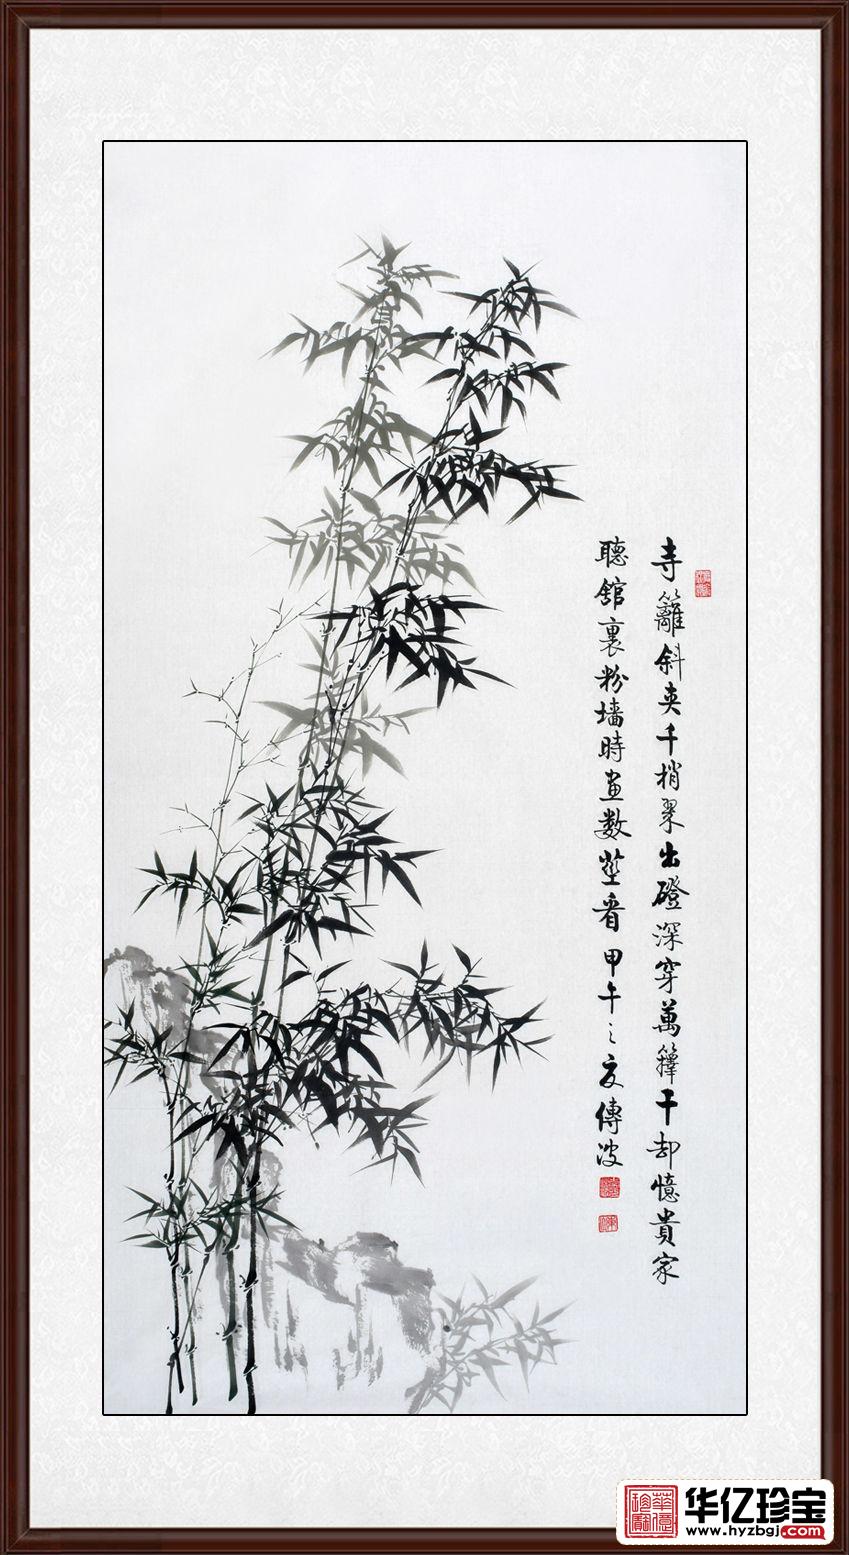 寺籬斜夹千梢翠出磴深穿萬籜干却憶貴家
聽舘裏粉墙時画数莖看甲午之夏傳波
華億珍寶
华亿珍宝
www.hyzbgj.com